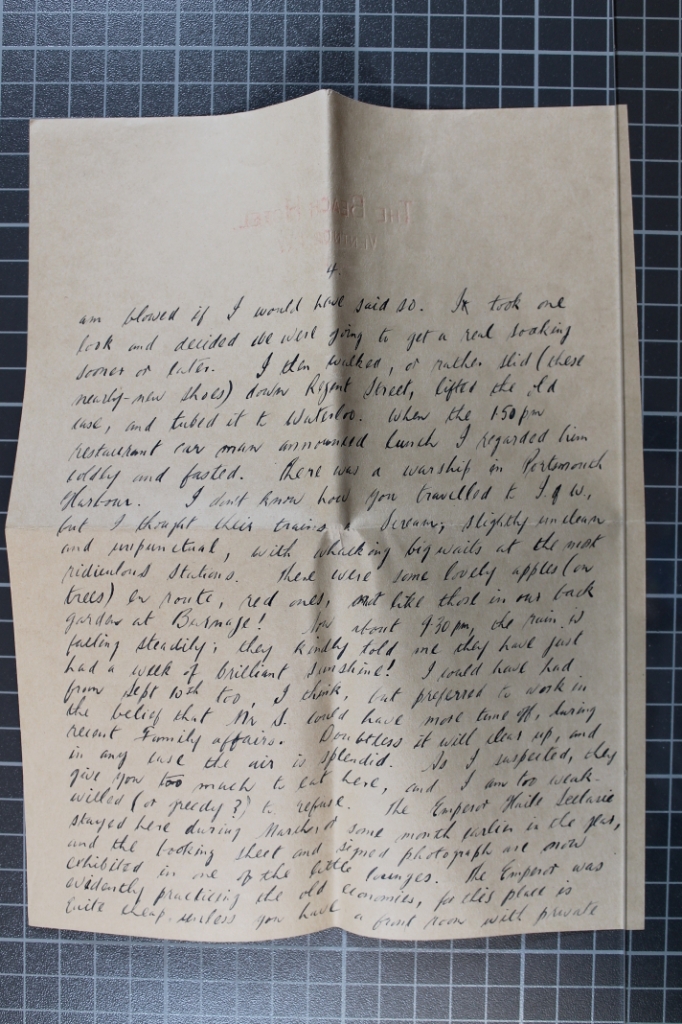 THE BEACH HOTEL
4.
am blowed if I would have said so. It took one
look and decided we were going to get a real soaking
sooner or later. I then walked, or rather slid (these
nearly-new shoes) down Regent Street, lifted the old
case, and tubed it to Waterloo. When the 1.50 pm
restaurant car man announced lunch I regarded him
coldly and fasted. There was a warship in Portsmouth
Harbour. I don't know how you travelled to I of W.,
but I thought their trains a scream, slightly unclean
and unpunctual, with whacking big waits at the most
ridiculous stations. There were some lovely apples (on
trees) en route, red ones, not like those in our back
garden at Burnage! Now about 9.30 pm, the rain is
falling steadily; they kindly told me they have just
had a week of brilliant sunshine! I could have had
from Sept 10th too, I think, but preferred to work in
the belief that Mr S. would have more time off, during
recent family affairs. Doubtless it will clear up, and
in any case the air is splendid. As I suspected, they
give you too much to eat here, and I am too weak-
willed (or greedy?) to refuse. The Emperor Haile Selassie
stayed here during March or some month earlier in the year,
and the booking sheet and signed photograph are now
exhibited in one of the little lounges. The Emperor was
evidently practising the old economies, for this place is
quite cheap unless you have a front room with private